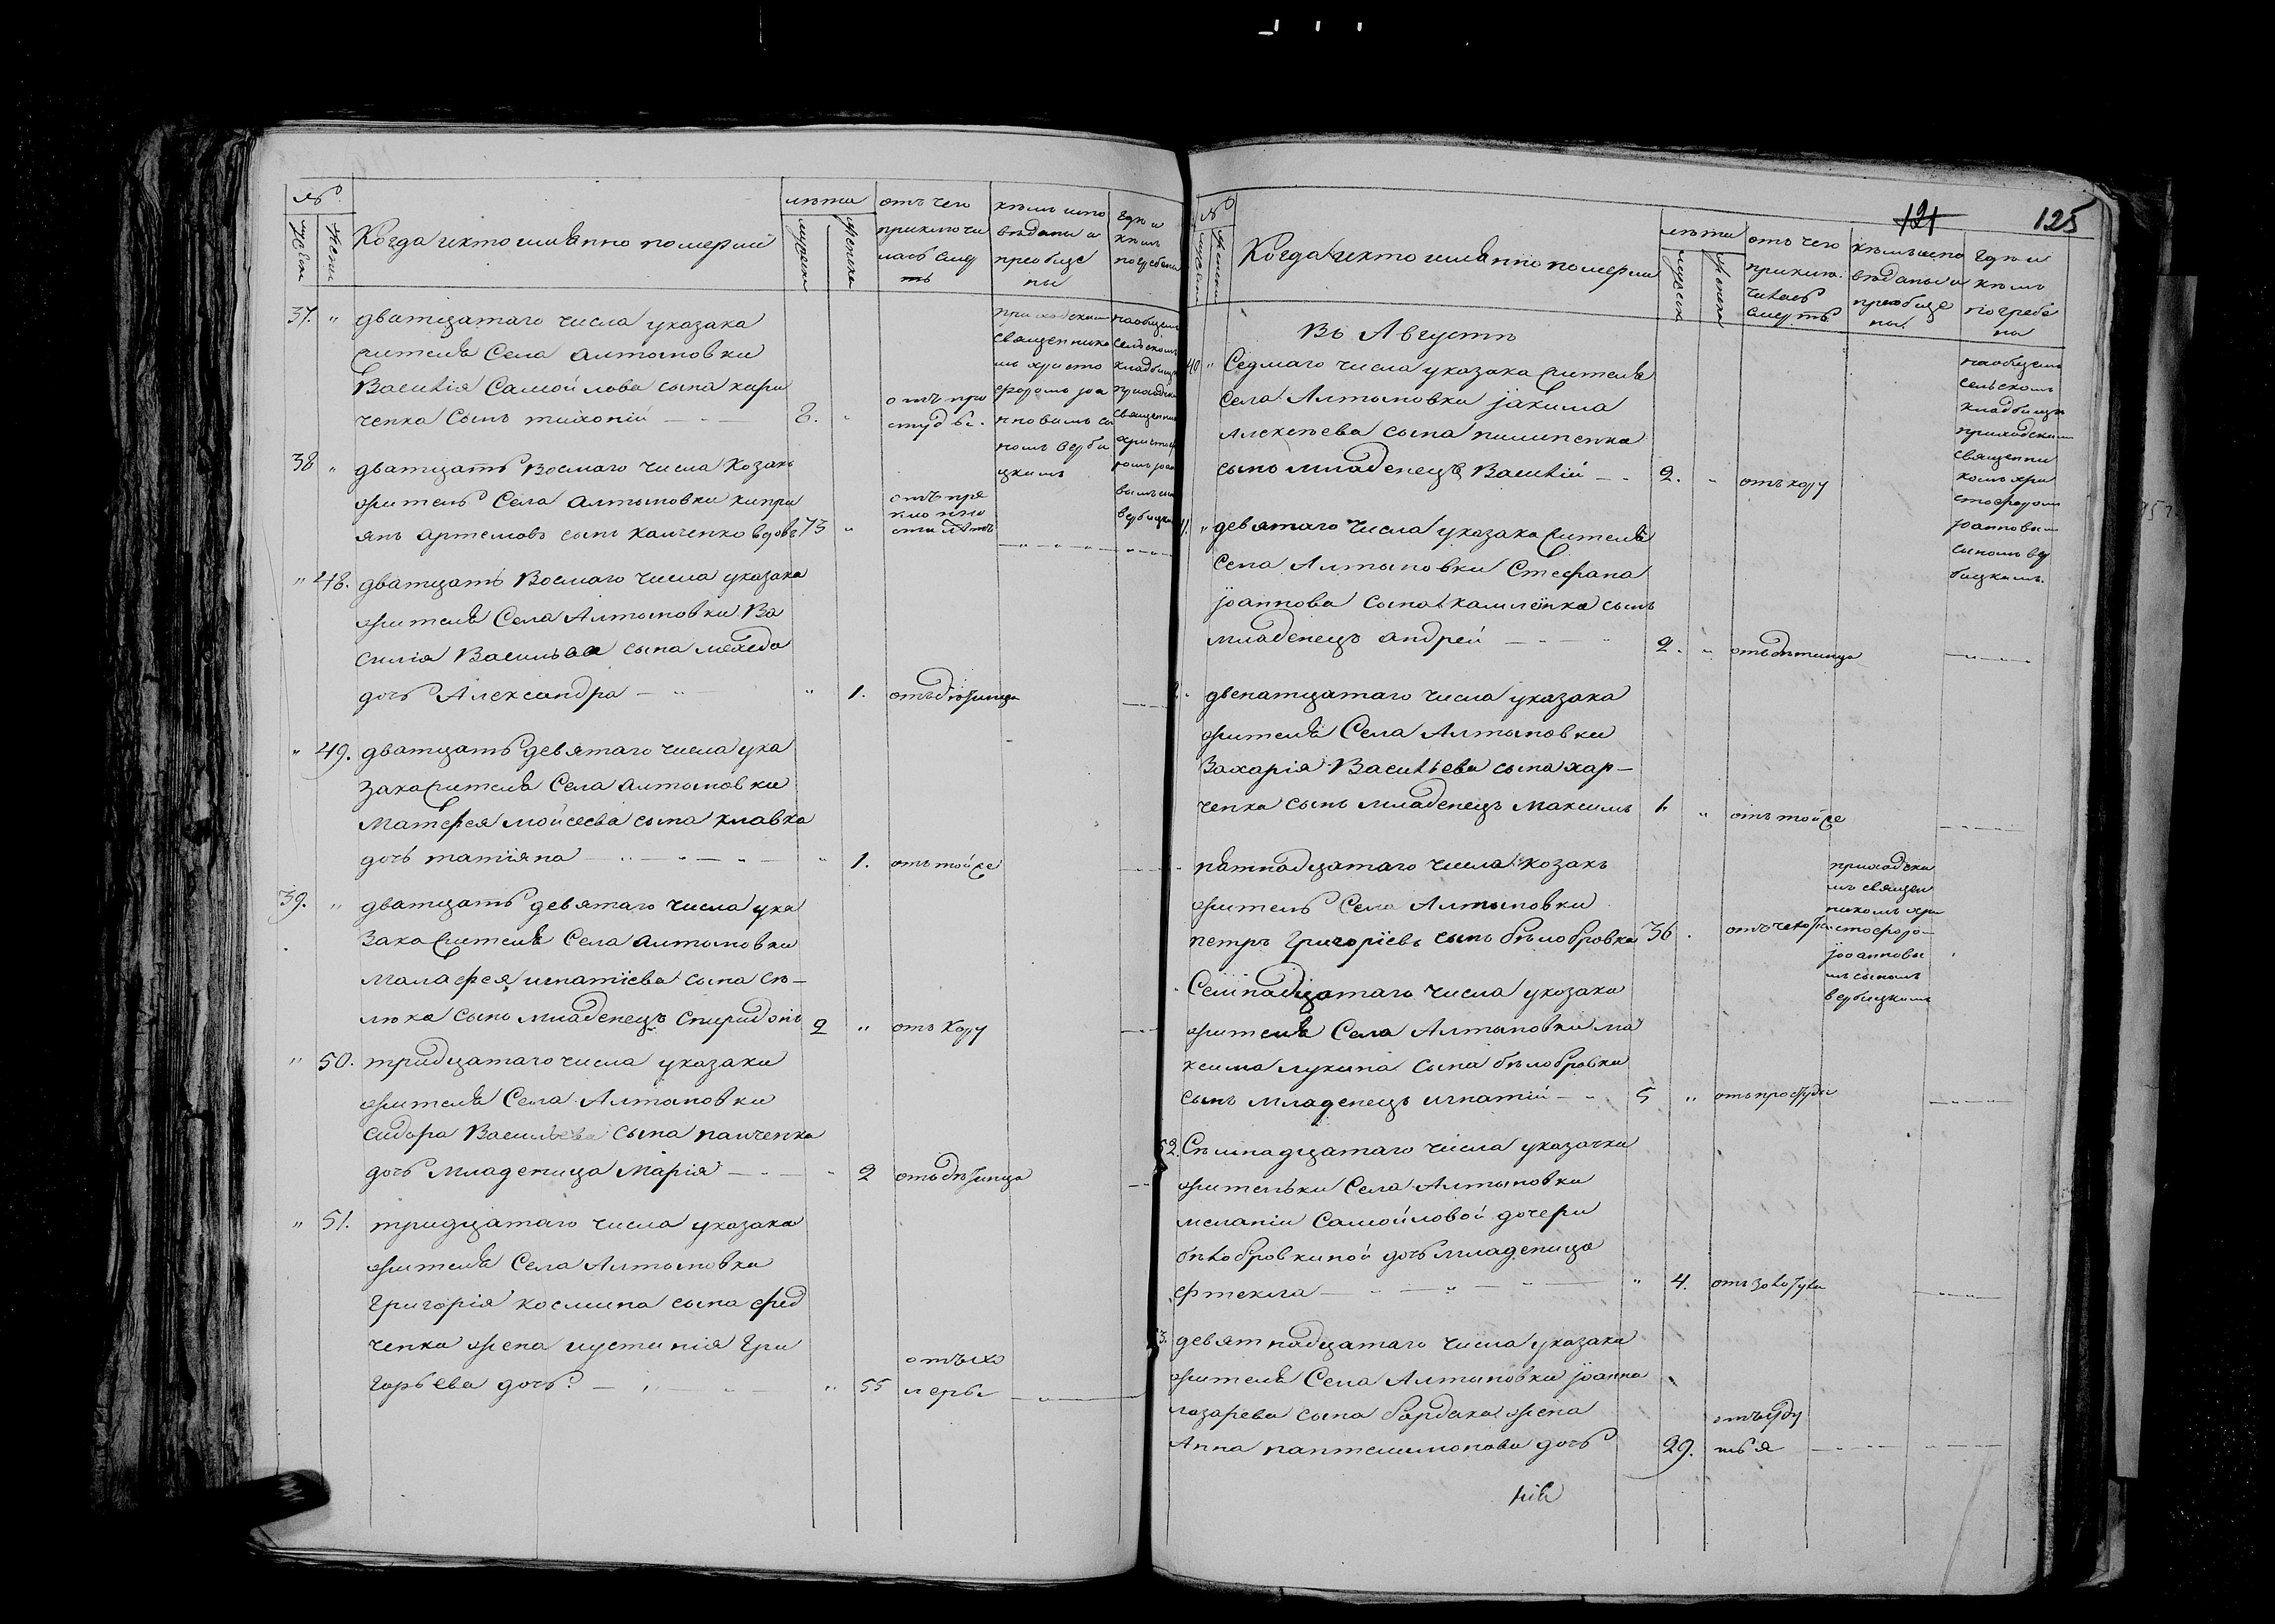 №
мужеск
женск
Когда и кто имянно померли
лѣта
мужеск
женска
отъ чего
приключи
лась смер
ть
кѣмъ испо
вѣданы и
преобще
ны
гдѣ и
кѣмъ
погребены
37. " дватцатаго числа указака
жителя Села Алтыновки
Василія Самойлова сына хари
ченка Сынъ тихоній — — 8. " отъ про
студы.
приходским
священнико
мъ христо
форомъ іоа
нновымъ сы
номъ верби
цкимъ
на общем
сельскомъ
кладбищѣ
приходски
священни
христоф
ромъ іоан
вымъ сы
вербицки
38 " дватцать Восмаго числа Козакъ
житель Села Алтыновки кипри
янъ Артемовъ сынъ Калченко вдовъ 73 " отъ пре
клонно
сти лѣтъ
" 48. дватцать Восмаго числа указака
жителя Села Алтыновки Ва
силія Васильева сына
дочь Александра — " — " 1. отъ дѣтинца
" 49. дватцать девятаго числа ука
зака жителя Села Алтыновки
Матфея Мойсеева сына клавка
дочь татіяна — " — " — " 1. отъ той же
39. " дватцать девятаго числа ука
зака жителя Села Алтыновки
Малафея игнатіева сына сѣ-
лка сынъ младенецъ Спиридонъ 2 " отъ кору
" 50. тридцатаго числа указака
жителя Села Алтыновки
Сидора Васильева сына панченка
дочь младеница Марія — " — " 2 отъ дѣтинца
" 51. тридцатаго числа указака
жителя Села Алтыновки
Григорія космина сына фед
ченка жена иустинія Гри
горьева дочь. — " " 55 отъ хо
леры — " —
121 125
№
мужеск
женски
Когда и кто имянно померли
лѣта
мужеск
женск
отъ чего
приклю-
чилась
смерть
кѣмъ испо
вѣданы и
преобще
ны
гдѣ и
кѣмъ
погребе
ны
Въ Августѣ
40 " Седмаго числа указака жителя
Села Алтыновки іакима
Алексѣева сына пилипенка
сынъ младенецъ Василій — — 2. " отъ кору
на общемъ
сельскомъ
кладбищѣ
приходским
священни
комъ хри
стофором
іоанновым
сыномъ вер
бицкимъ.
" девятаго числа указака жителя
Села Алтыновки Стефана
іоаннова сына сынъ
младенецъ Андрей — — " 2. " отъ дѣтинца
двенатцатаго числа указака
жителя Села Алтыновки
Захарія Васильева сына хар-
ченка сынъ младенецъ Максимъ 1. " отъ той же
пятнадцатаго числа козакъ
житель Села Алтыновки
петръ Григоріевъ сынъ бѣлобровка 36 .
приходски
мъ священ
никомъ хри
стофоро-
іоанновы
мъ сыномъ
вербицкимъ
Семнадцатаго числа указака
жителя Села Алтыновки ма
ксима лукина сына бѣлобровки
сынъ младенецъ игнатій — " 5 " отъ простуды
52. Сѣмнадцатаго числа указачки
жительки Села Алтыновки
меланіи Самойловой дочери
бѣлобровкиной дочь младеница
фтекла — " — " — " 4.
3. девятнадцатаго числа указака
жителя Села Алтыновки іоанна
лазарева сына бардака жена
Анна пантелимонова дочь 29.